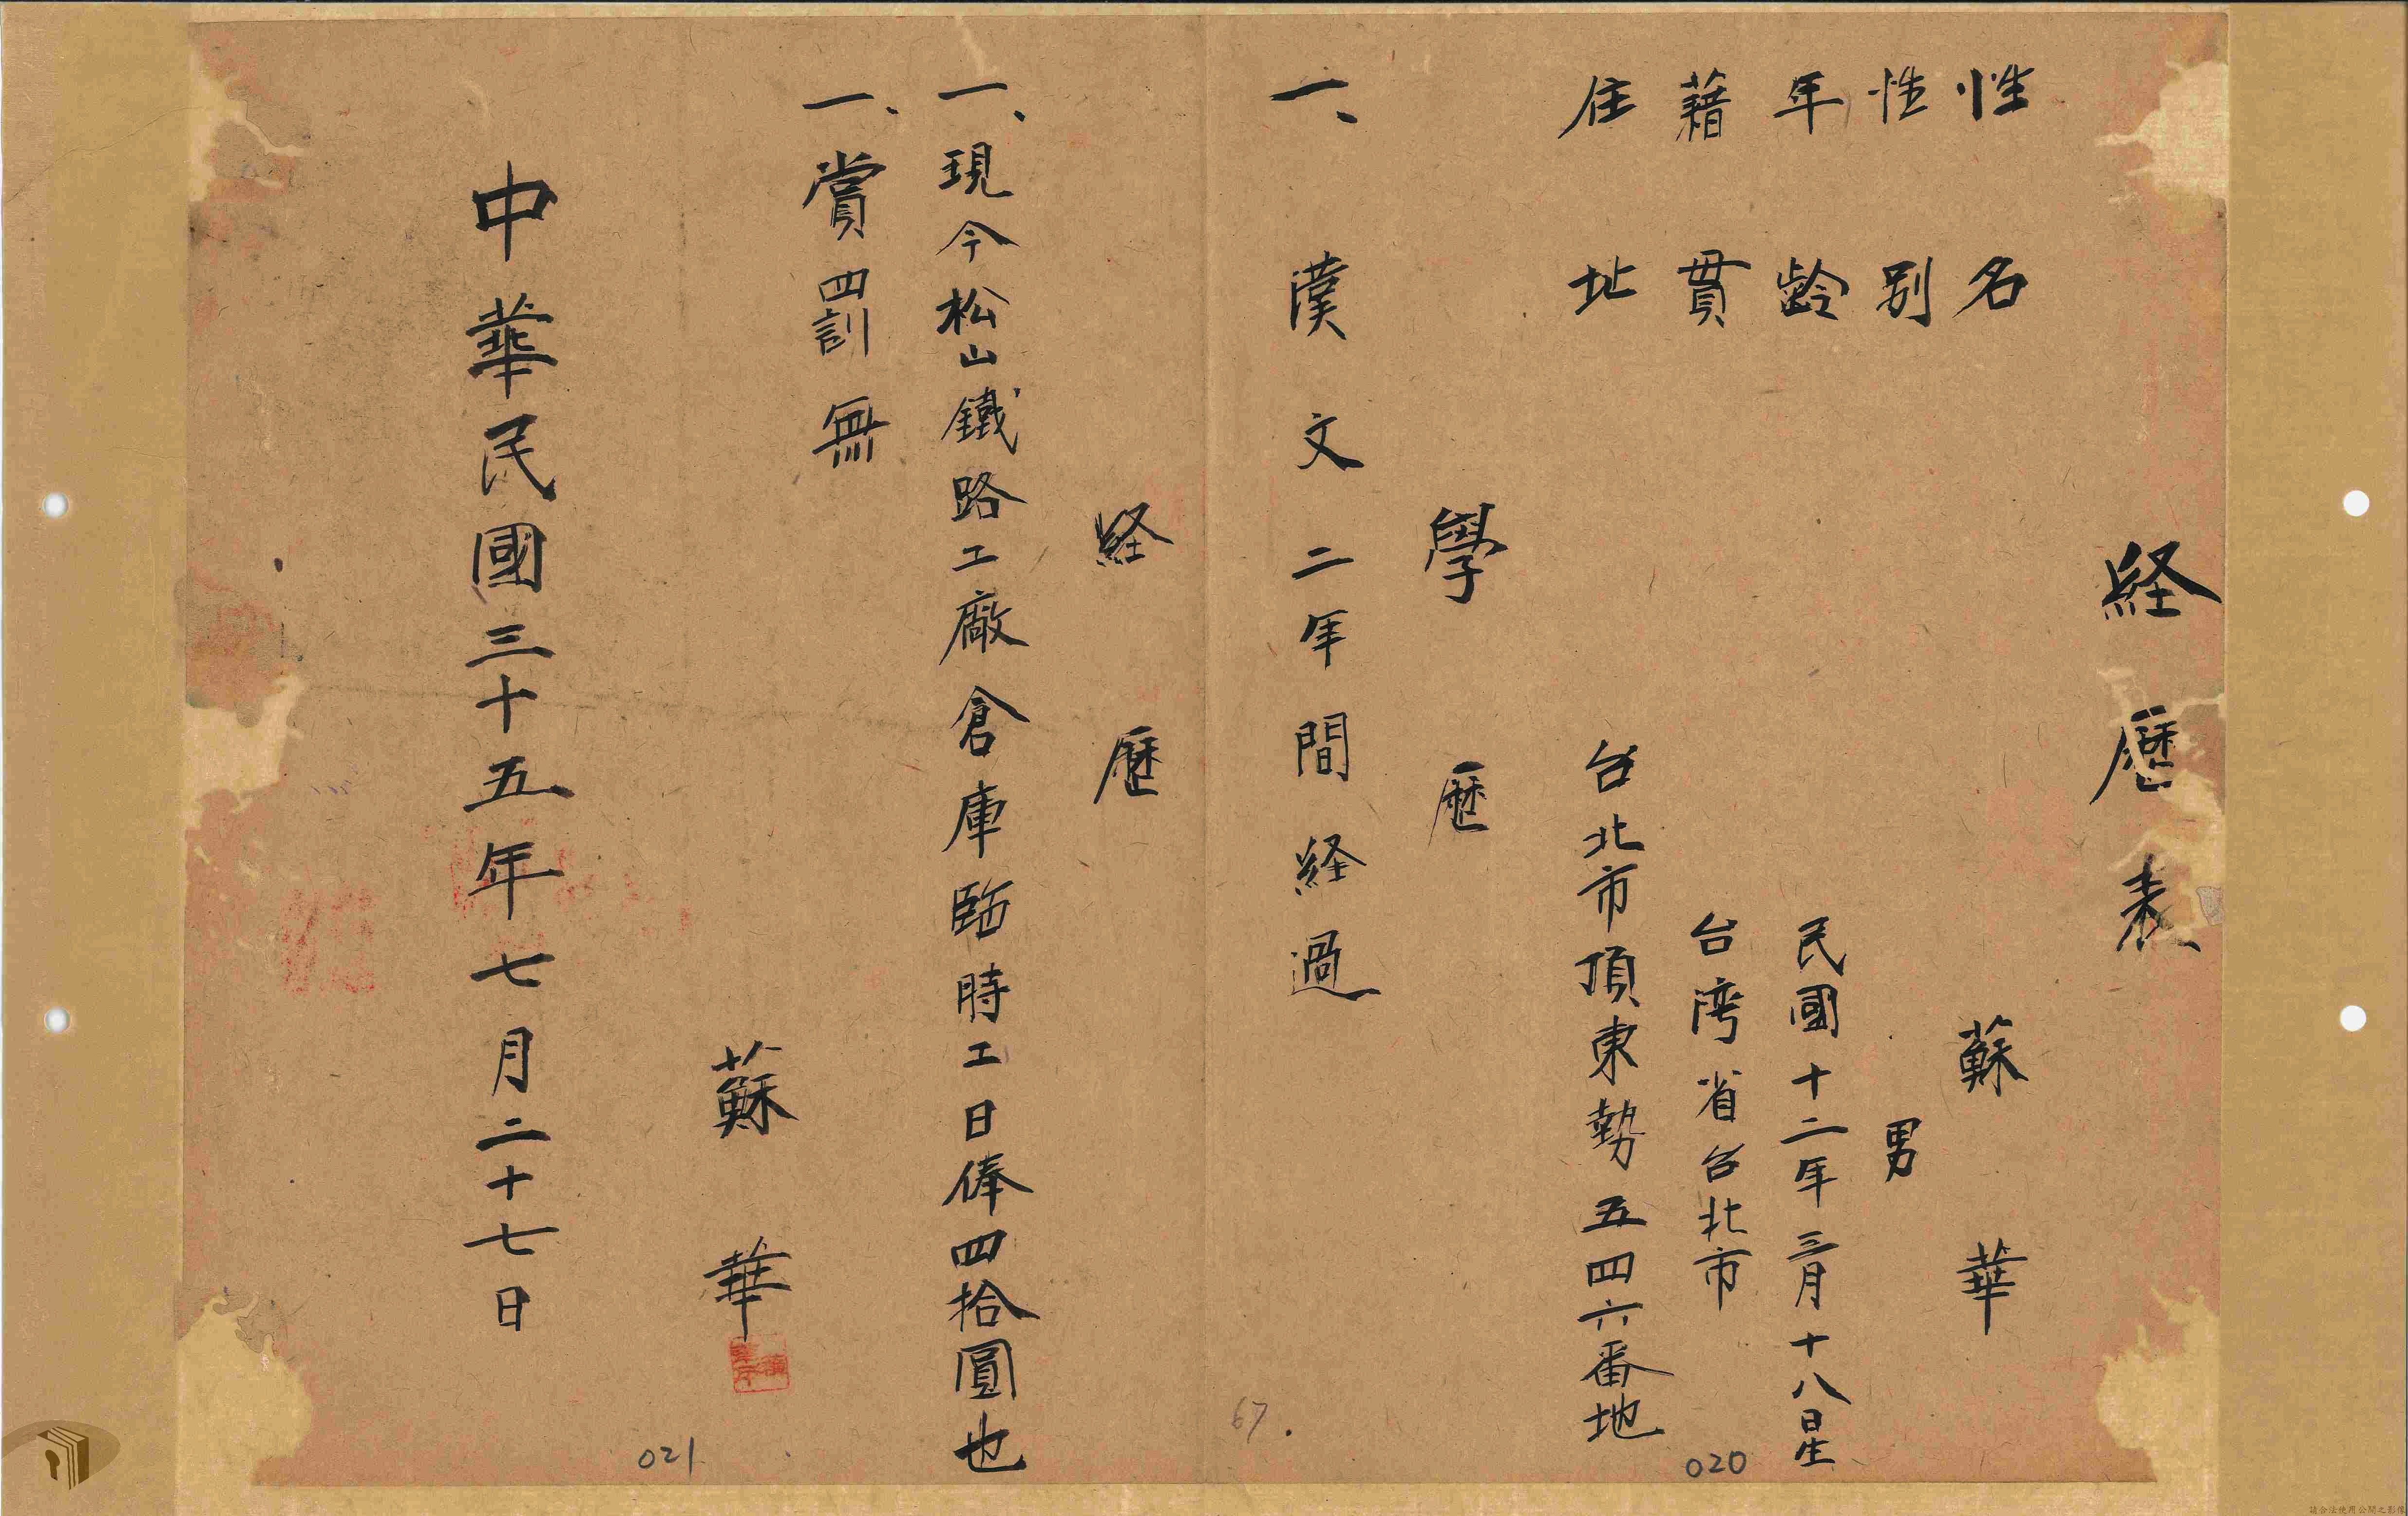 経歷表
性名 蘇華
性別 男
年齡 民國十二年三月十八日生
藉貫 台湾省台北市
住址 台北市頂東勢五四六番地
學歷
一、漢文二年間経過
経歷
一、現今松山鐵路工廠倉庫臨時工日俸四拾圓也
一、賞四訓無
蘇華
中華民國三十五年七月二十七日
67.
020
021
請合法使用公開之影像